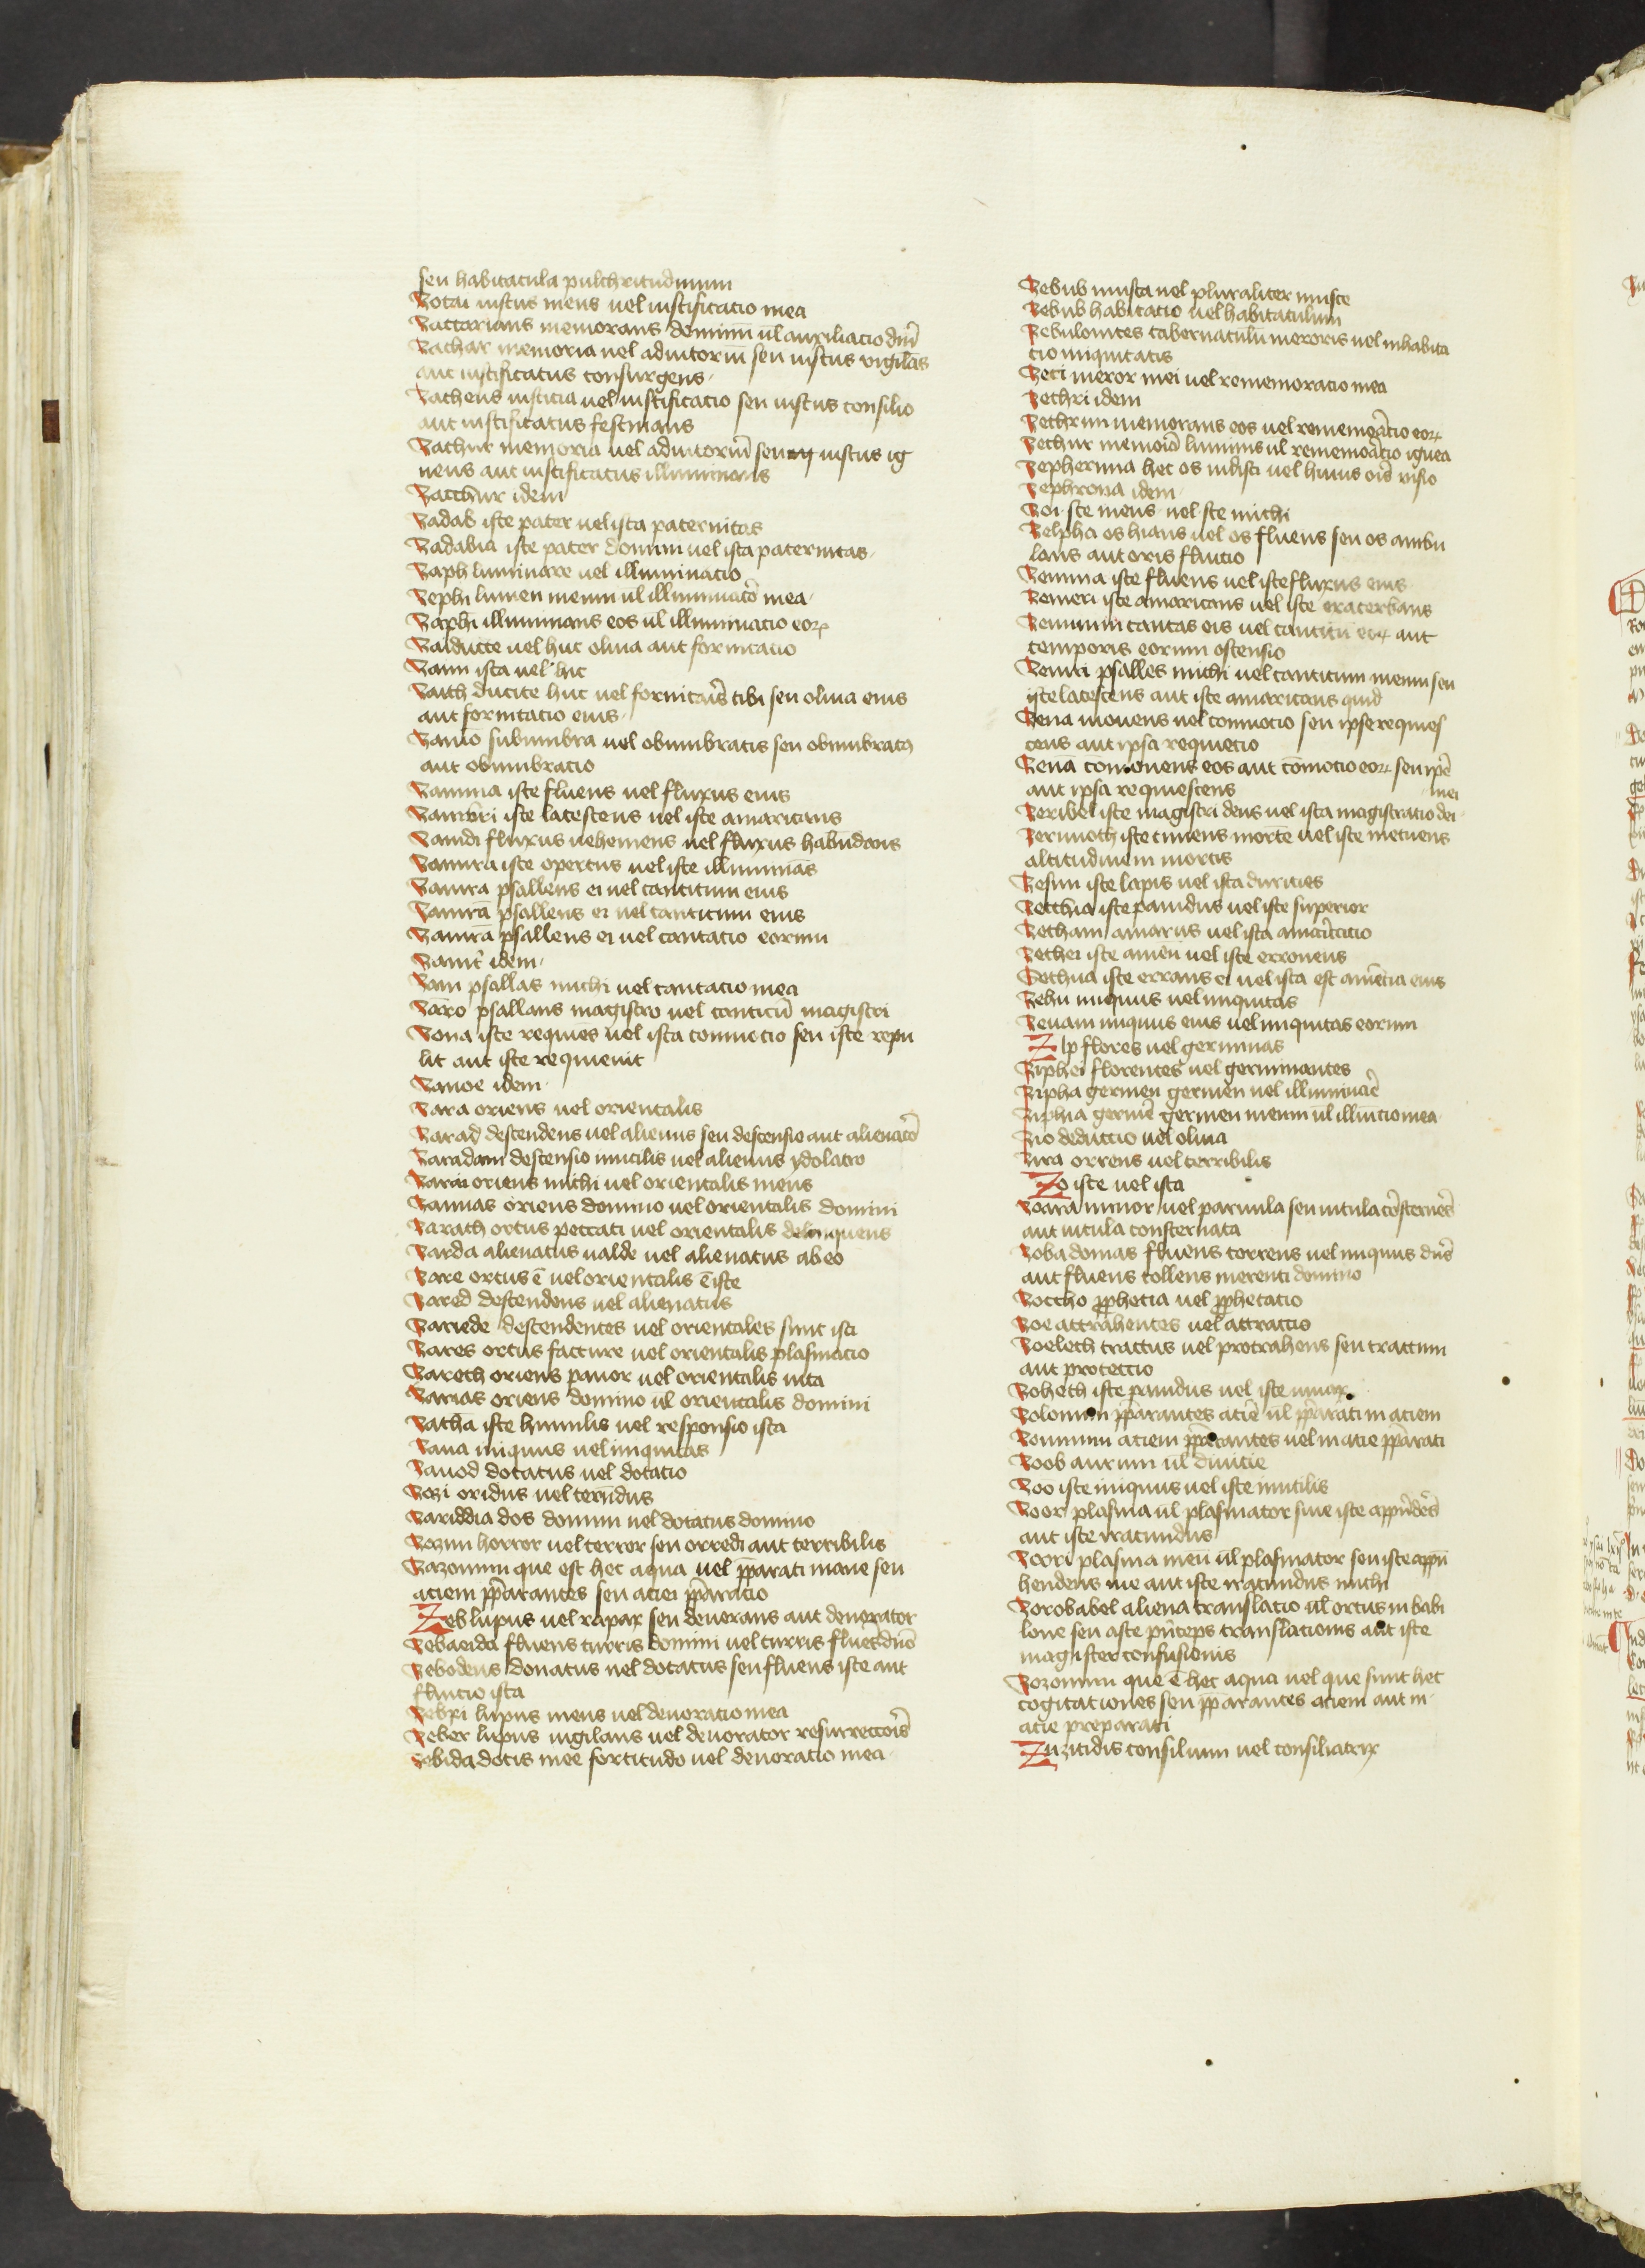 seu habitacula pulchritudinum
Zotai iustus meus uel iustificatio mea
Zaccarians memorans dominū ul̄ auxiliacio dnī
Zachar memoria uel adiutoriū seu iustus vigilās
aut iustificatus consurgens
Zacheus iusticia uel iustificatio seu iustus consilio
aut iustificatus festinans
Zachur memoria uel adiutoriū seu iustus ig
neus aut iustificatus illuminans
Zacchur idem
Zadab iste pater uel ista paternitas
Zadabia iste pater domini uel ista paternitas
Zaph luminare uel illuminacio
Zephi lumen meum ul̄ illuminatō mea
Zaphi illuminans eos ul̄ illuminacio eoꝝ
Zaiducte uel huc oliua aut fornicatio
Zam ista uel hic
Zaith ducite huc uel fornicans tibi seu oliua eius
aut fornicatio eius
Zamo subumbra uel obumbratis seu obumbratꝰ
aut obumbratio
Zamma iste fluens uel fluxus eius
Zambri iste lacescens uel iste amaricans
Zamdi fluxus uehemens uel fluxus habundans
Zamira iste opertus uel iste illuminās
Zamra psallens ei uel canticum eius
Zamrā psallens ei uel canticum eius
Zamrā psallens ei uel cantacio eorum
Zamr idem
Zam psallas michi uel cantacio mea
Zāro psallans magistro uel canticū magistri
Zona iste requies uel ista commocio seu iste repu
lit aut iste requieuit
Zanoe idem
Zara oriens uel orientalis
Zarad descendens uel alienus seu descensio aut alienatō
Zaradam descensio inutilis uel alienus ydolatro
Zarai oriens michi uel orientalis meus
Zarias oriens domino uel orientalis domini
Zarath ortus peccati uel orientalis delinquens
Zarda alienatus ualde uel alienatus ab eo
Zare ortus ē uel orientalis ē iste
Zared descendens uel alienatus
Zariede descendentes uel orientales sunt isti
Zares ortus facture uel orientalis plasmacio
Zareth oriens pauor uel orientalis uita
Zarias oriens domino ul̄ orientalis domini
Zathā iste humilis uel responsio ista
Zaua iniquus uel iniquitas
Zauod dotatus uel dotatio
Zozi oridus uel
Zariddia dos domini uel dotatus domino
Zozim horror uel terror seu orredi aut terribilis
Zazomim que est hec aqua uel pparati maue seu
aciem pparantes seu aciei pparacio
Zeb lupus uel rapax seu deuorans aut deuorator
Zebaeida fluens turris domini uel turris fluēs dn̄o
Zebedeus donatus uel dotatus seu fluens iste aut
fluitio ista
Zebei lupus meus uel deuoratio mea
Zeber lupus uigilans uel deuorator resurreccōis
Zebida dotis mee fortitudo uel deuoratio mea
Zebub musca uel pluraliter musce
Zebub habitatio uel habitaculum
Zebulonites tabernaculū meroris uel inhabita
tio iniquitatis
Zeci meror mei uel rememoratio mea
Zethri idem
Zethrim memorans eos uel rememorātio eoꝝ
Zethur luminis ul̄ ignea
Zepherima hec os uel huius oīs uisio
Zephrona idem
Zoi ste meus uel ste michi
Zelpha os hians uel os fluens seu os ambu
lans aut oris fluitio
Zemma iste fluens uel iste fluxus eius
Zemeri iste amaricans uel iste exacerbans
Zemmim cantas eis uel canticū eoꝝ aut
temporis eorum ostensio
Zemri psalles michi uel canticum meum seu
iste lacescens aut iste amaricans quid
Zena mouens uel commocio seu ipse requies
cens aut ipsa requietio
Zenā comouens eos aut cōmocio eoꝝ seu ipē
aut ipsa requiescens
Zeribel iste magistri deus uel ista magistratio dei mei
Zerimoth iste timens morte uel iste metuens
altitudinem mortis
Zesim iste lapis uel ista durities
Zetchia iste pauidus uel iste superior
Zetham amarus uel ista
Zethei iste amen uel iste erroneus
Zethua iste errans ei uel ista est amētia eius
Zebu iniquus uel iniquitas
Zeuam iniquus eius uel iniquitas eorum
Zip flores uel germinas
Ziphei florentes uel germinantes
Zipha germen germen uel
Ziphia germē germen meum ul̄ mea
Zio deductio uel oliua
Zira orrens uel terribilis
Zo iste uel ista
Zoara minor uel paruula seu uitula
aut uitula consternata
Zoba domas fluens torrens uel iniquus dn̄s
aut fluens tollens merenti domino
Zoccho pphetia uel pphetatio
Zoe attrahentes uel attractio
Zoeleth tractus uel protrahens seu tractum
aut protectio
Zoheth iste pauidus uel iste
Zolomim pparantes aciē ul̄ pparati in aciem
Zommim aciem pparantes uel in acie pparati
Zoob aurum ul̄ diuitie
Zoo iste iniquus uel iste inutilis
Zoor plasma ul̄ plasmator siue iste
aut iste iracundus
Zoori plasma meū ul̄ plasmator seu iste app̄
hendens me aut iste iracundus michi
Zorobabel aliena translatio ul̄ ortus in babi
lone seu aste prīceps translationis aut iste
magister confusionis
Zozomim que ē hec aqua uel que sunt hec
cogitationes seu pparantes aciem aut in
acie preparati
Zuzitidis consilium uel consiliatrix